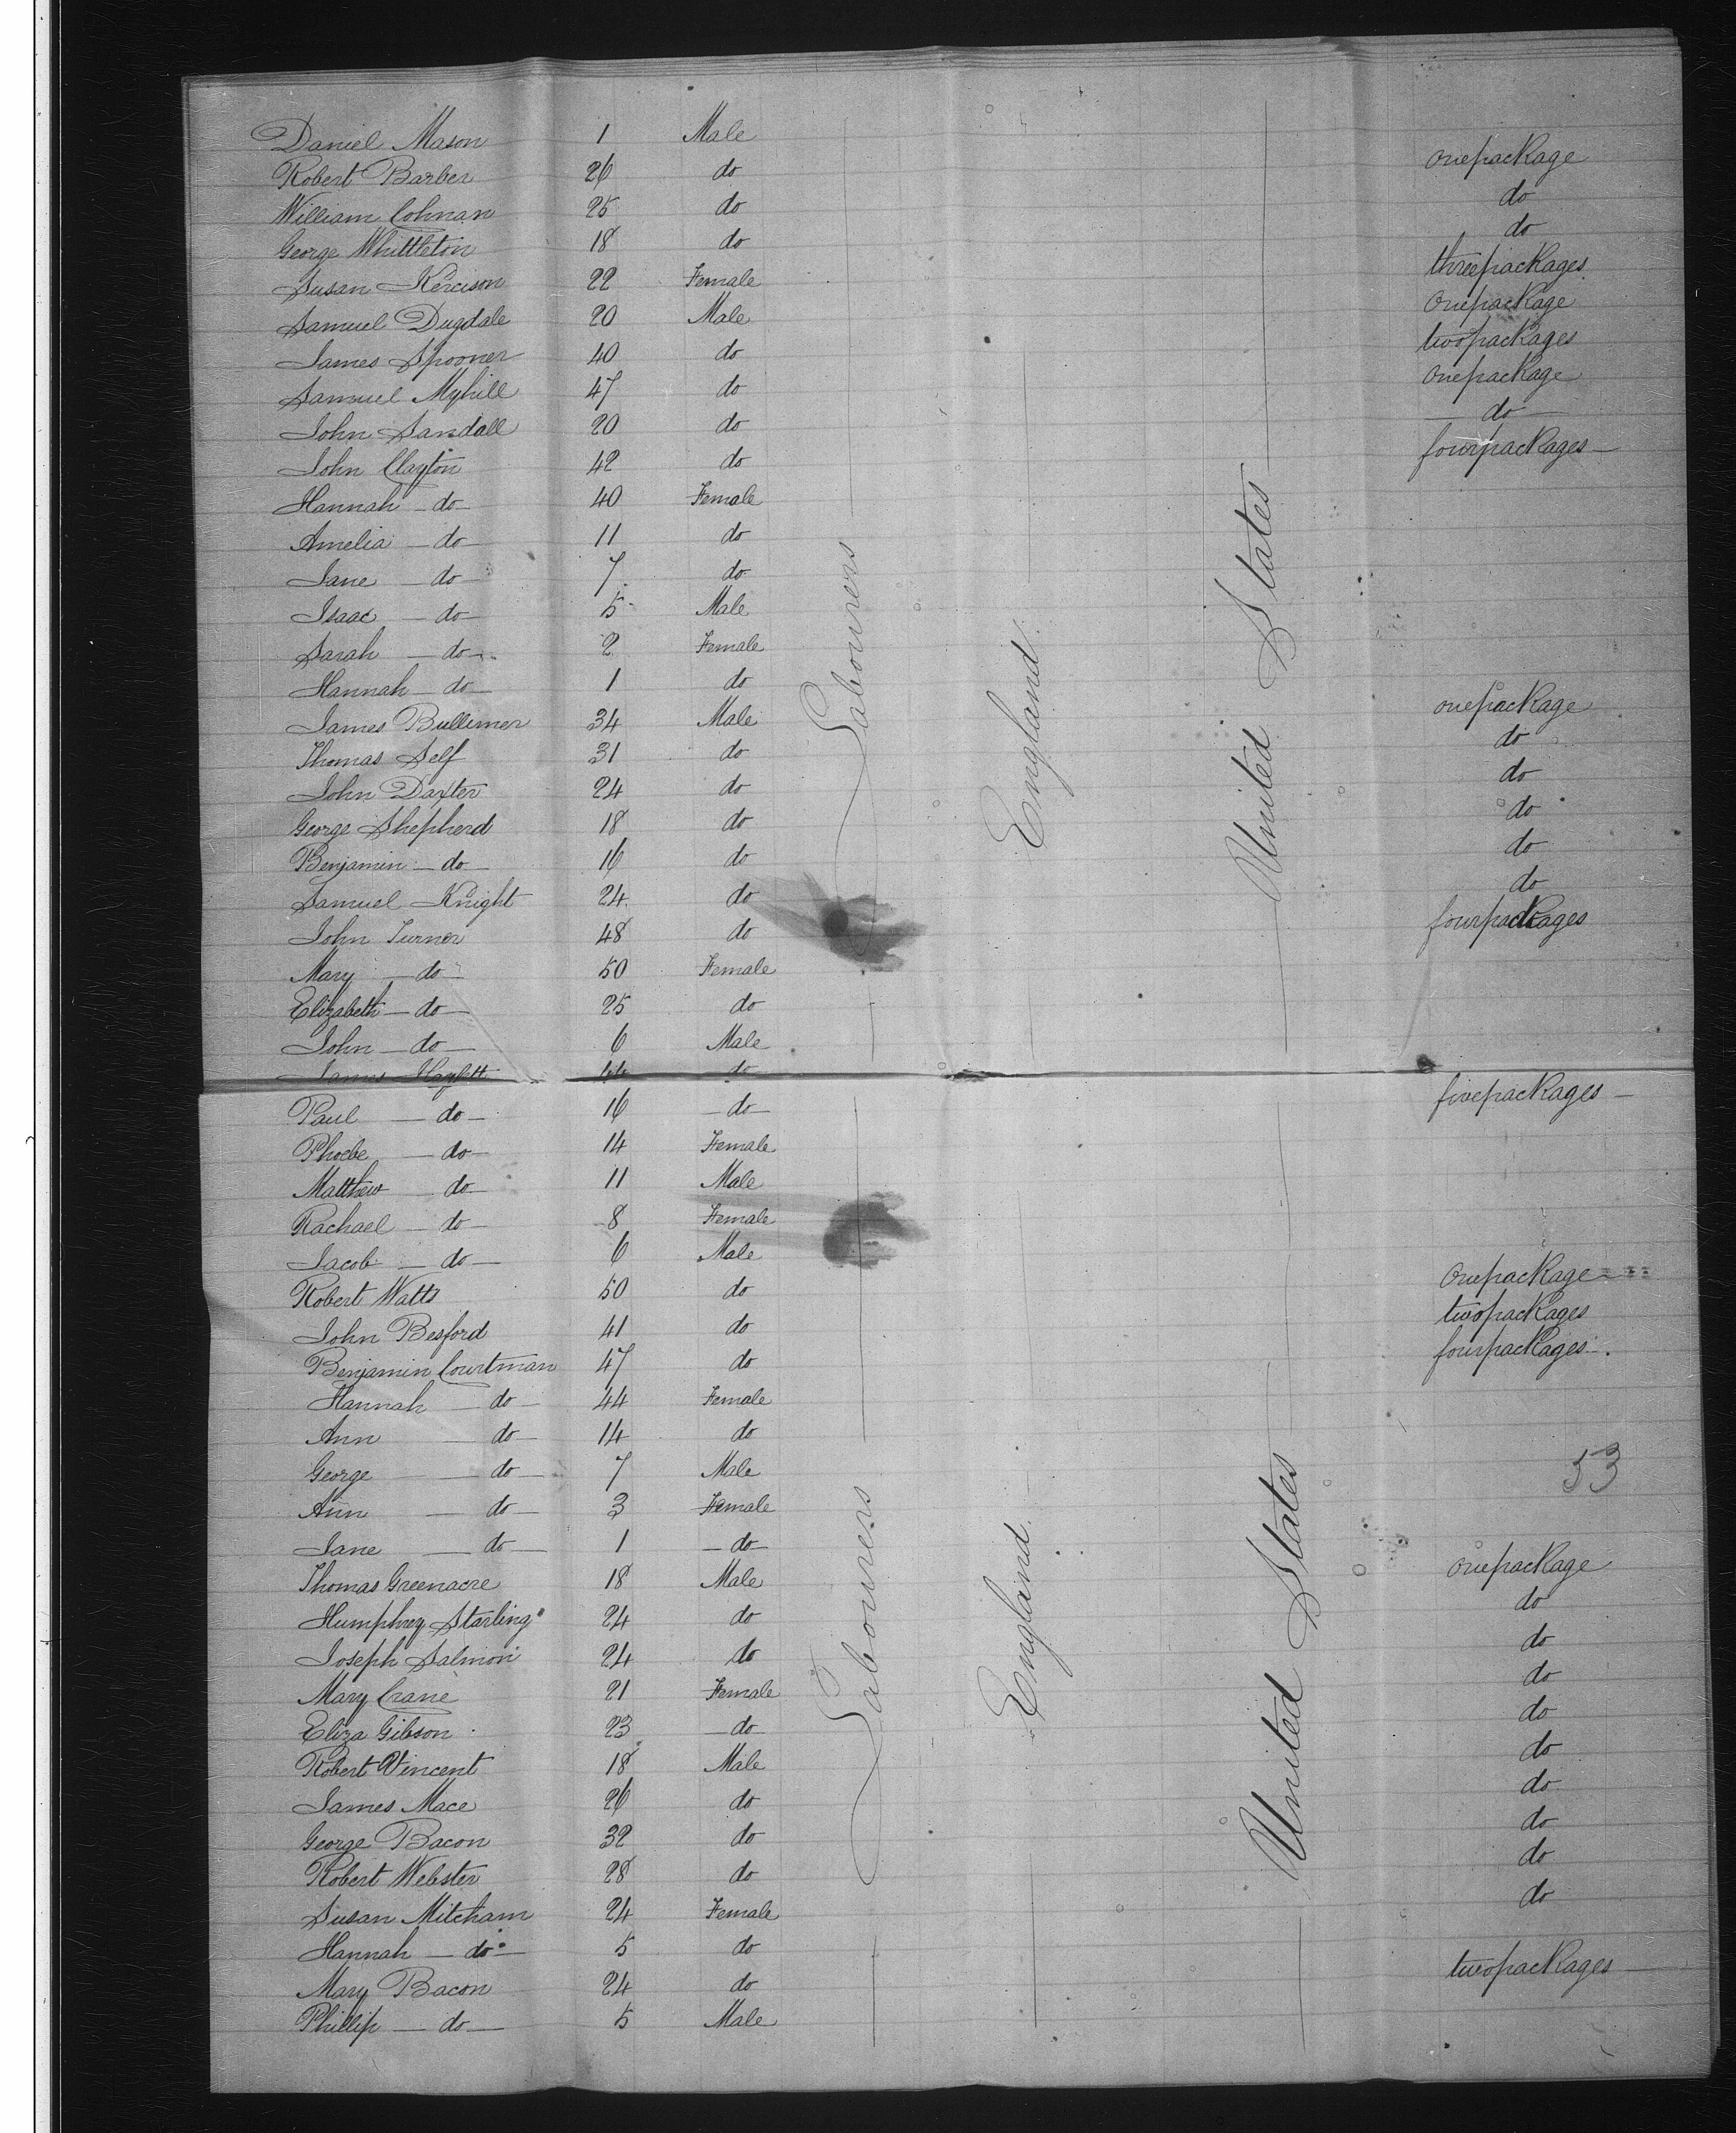 Daniel Mason 1 Male
Robert Barber 26 do onepackage
William Colman 25 do do
George Whittleton 18 do do
Susan Kerrison 22 Female threepackages
Samuel Dugdale 20 Male onepackage
James Spooner 40 do twopackages
Samuel Myhill 47 do onepackage
John Sandall 20 do do
John Clayton 42 do fourpackages
Hannah do 40 Female
Amelia do 11 do
Jane do 7 do
Isaac do 5 Male
Sarah do 2 Female
Hannah do 1 do
James Bullimer 34 Male onepackage
Thomas Self 31 do do
John Daxter 24 do do
George Shepherd 18 do do
Benjamin do 16 do do
Samuel Knight 24 do do
John Turner 48 do fourpackages
Mary do 50 Female
Elizabeth do 25 do
John do 6 Male
James Haylett 44 do fivepackages
Paul do 16 do
Phoebe do 14 Female
Matthew do 11 Male
Rachael do 8 Female
Jacob do 6 Male
Robert Watts 50 do onepackage
John Besford 41 do twopackages
Benjamin Courtman 47 do fourpackages
Hannah do 44 Female
Ann do 14 do
George do 7 Male
Ann do 3 Female
Jane do 1 do
Thomas Greenacre 18 Male onepackage
Humphrey Starling 24 do do
Joseph Salmon 24 do do
Mary Crane 21 Female do
Eliza Gibson 23 do do
Robert Vincent 18 Male do
James Mace 26 do do
George Bacon 32 do do
Robert Webster 28 do do
Susan Mitcham 24 Female do
Hannah do 5 do
Mary Bacon 24 do twopackages
Phillip do 5 Male
Labourers
England
United States
53
Labourers
England
United States